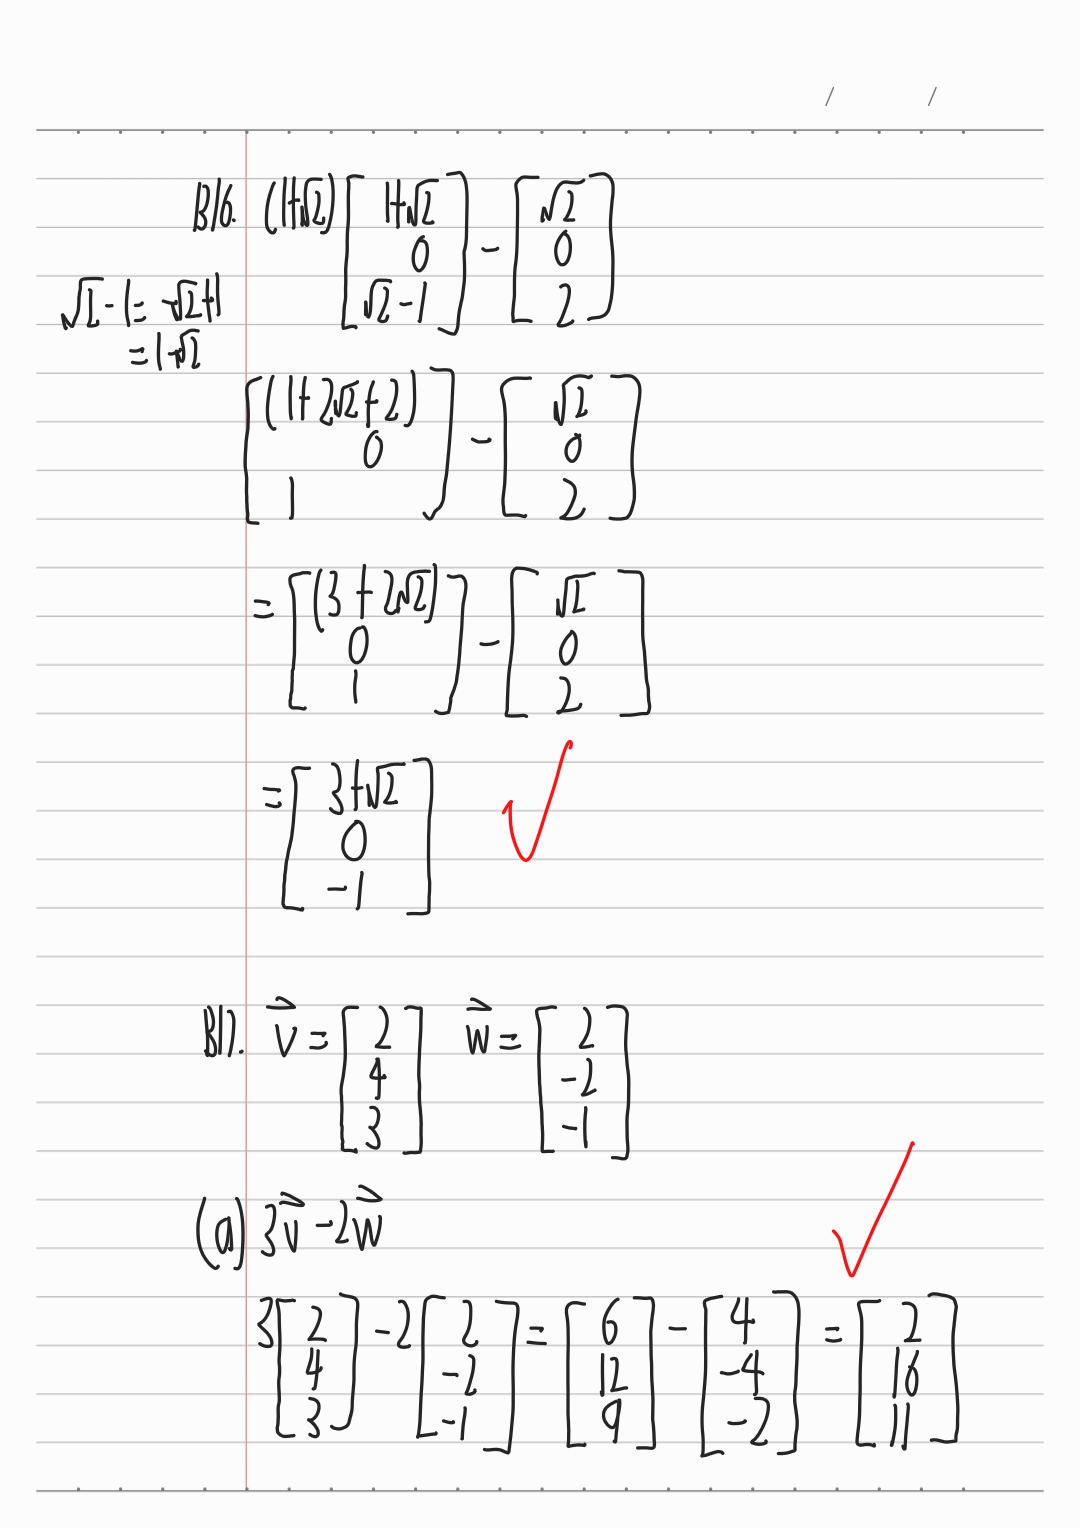 / /
B16. (1+√2) [1+√2 0 √2-1] - [√2 0 2]
√2-1 = -√2+1
= 1-√2
[(1+2√2+2) 0 1] - [√2 0 2]
= [(3+2√2) 0 1] - [√2 0 2]
= [3+√2 0 -1]
B17. v⃗ = [2 4 3] w⃗ = [2 -2 -1]
(a) 3v⃗ - 2w⃗
3[2 4 3] - 2[2 -2 -1] = [6 12 9] - [4 -4 -2] = [2 16 11]